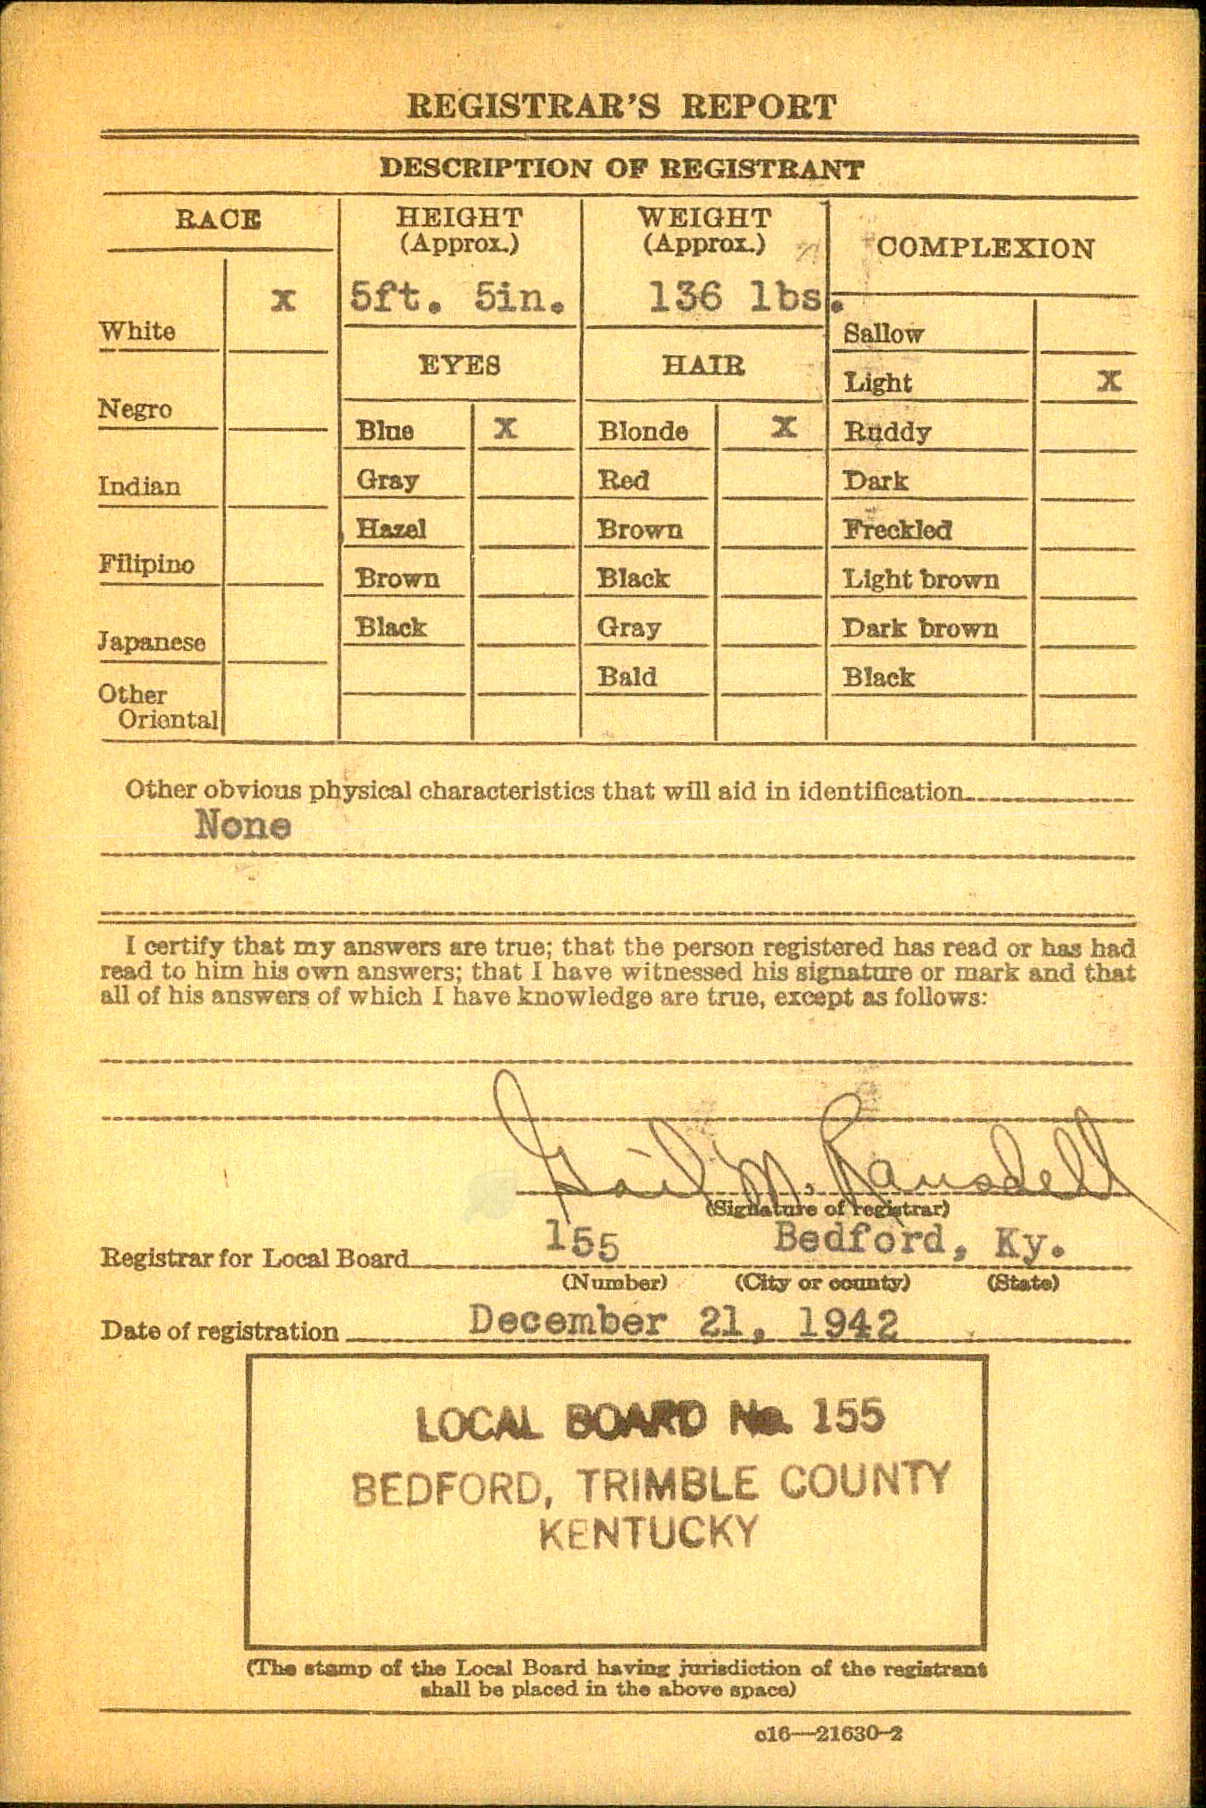 REGISTRAR'S REPORT
DESCRIPTION OF REGISTRANT
RACE
HEIGHT
(Approx.)
WEIGHT
(Approx.)
COMPLEXION
x
5ft. 5in.
136 lbs.
White
Sallow
EYES
HAIR
Light X
Negro
Blue X
Blonde X
Ruddy
Indian
Gray
Red
Dark
Hazel
Brown
Freckled
Filipino
Brown
Black
Light brown
Japanese
Black
Gray
Dark brown
Other
Oriental
Bald
Black
Other obvious physical characteristics that will aid in identification
None
I certify that my answers are true; that the person registered has read or has had
read to him his own answers; that I have witnessed his signature or mark and that
all of his answers of which I have knowledge are true, except as follows:
Gail M. Ransdell
(Signature of registrar)
Registrar for Local Board 155 Bedford, Ky.
(Number) (City or county) (State)
Date of registration December 21, 1942
LOCAL BOARD No. 155
BEDFORD, TRIMBLE COUNTY
KENTUCKY
(The stamp of the Local Board having jurisdiction of the registrant
shall be placed in the above space)
c16—21630-2